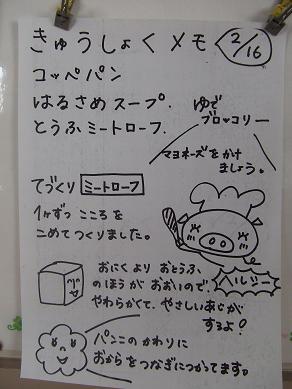 きゅうしょくメモ 2/16
コッペパン
はるさめスープ. ゆで
ブロッコリー
とうふミートローフ.
マヨネーズをかけ
ましょう。
てづくり ミートローフ
1ケずつ こころを
こめてつくりました。
おにくより おとうふ
のほうが おおいので、
やわらかくて、やさしいあじが
するよ!
ヘルシー
パンこのかわりに
おからをつなぎにつかってます。